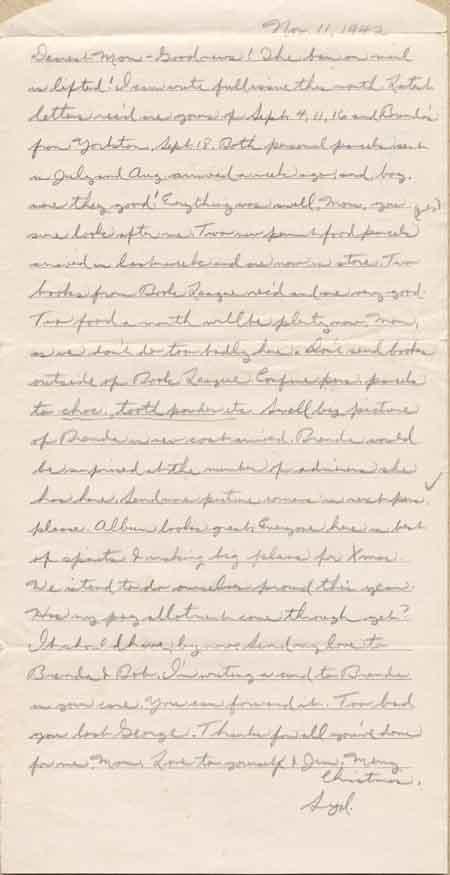 Nov 11, 1942
Dearest Mom - Good news! The ban on mail
is lifted! I can write full issue this month. Latest
letters rec'd are yours of Sept. 4, 11, 16 and Brenda's
from Yorkton, Sept. 18. Both personal parcels sent
in July and Aug. arrived a week ago and boy,
were they good! Everything was swell, Mom, you
sure look after me. Two new permit food parcels
arrived in last week and are now in store. Two
books from Book League rec'd and are very good.
Two food a month will be plenty now, Mom,
as we don't do too badly here. Don't send books
outside of Book League. Confine pers. parcels
to choc. tooth powder etc. Swell big picture
of Brenda in new coat arrived. Brenda would
be surprised at the number of admirers she
has here. Send more picture corners in next pers.
please. Album looks great. Everyone here in best
of spirits & making big plans for Xmas.
We intend to do ourselves proud this year.
Has my pay allotment come through yet?
It should have, by now. Send my love to
Brenda & Bob. I'm writing a card to Brenda
in your care. You can forward it. Too bad
you lost George. Thanks for all you've done
for me Mom. Love to yourself & Jim. Merry
Christmas.
Syd.